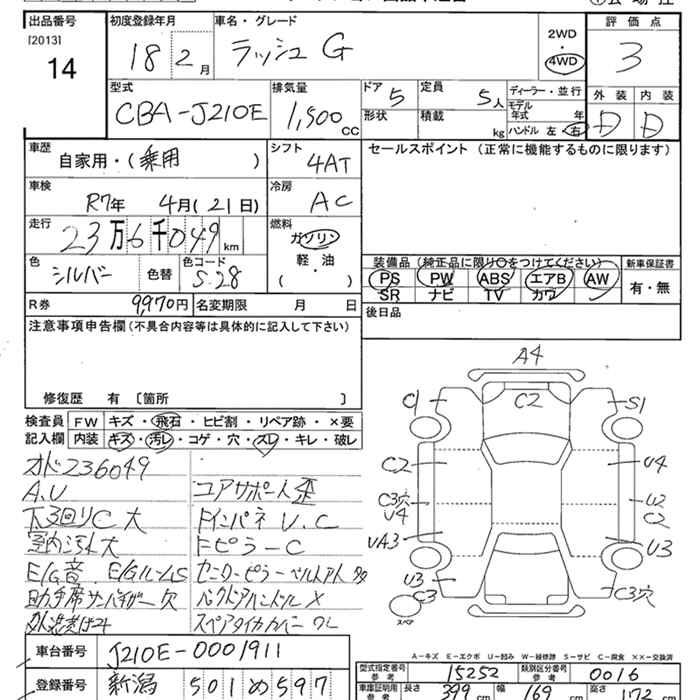 出品番号 初度登録年月 車名・グレード 2WD・4WD 評価点
[2013] 14 18 2月 ラッシュ G 3
型式 排気量 ドア 5 定員 5人 ディーラー・並行 外装 内装
CBA-J210E 1,500cc 形状 積載 kg モデル年式 年 D D
ハンドル 左・右
車歴 自家用・(乗用) シフト 4AT セールスポイント (正常に機能するものに限ります)
車検 R7年 4月(21日) 冷房 AC
走行 23万6千049km 燃料 ガソリン 軽・油 ( ・ )
色 シルバー 色替 色コード S.28
装備品(純正品に限り○をつけてください) 新車保証書
PS PW ABS エアB AW 有・無
SR ナビ TV カワ
R券 9,970円 名変期限 月 日
後日品
注意事項申告欄(不具合内容等は具体的に記入して下さい)
修復歴 有 〔箇所 〕
検査員記入欄 FW キズ・飛石・ヒビ割・リペア跡・×要
内装 キズ・汚レ・コゲ・穴・スレ・キレ・破レ
オド236049
A.U コアサポート歪
下廻りC大 ドインパネ U.C
室内汚れ大 ドピラーC
E/G音 E/GルームS センターピラーベルトアト多
助手席サンバイザー欠 バックドアハンドル×
スペアタイヤカバーワレ
A4
C1 C2 S1
C2 U4
C3穴 U4 U2 C2
UA3 U3
U3 C3 C3穴
スペア
A-キズ E-エクボ U-凹み W-補修跡 S-サビ C-腐食 ××-交換済
車台番号 J210E-0001911
型式指定番号 参考 15252 類別区分番号 参考 0016
登録番号 新潟 501め597
車庫証明用 参考 長さ 399cm 幅 169cm 高さ 172cm